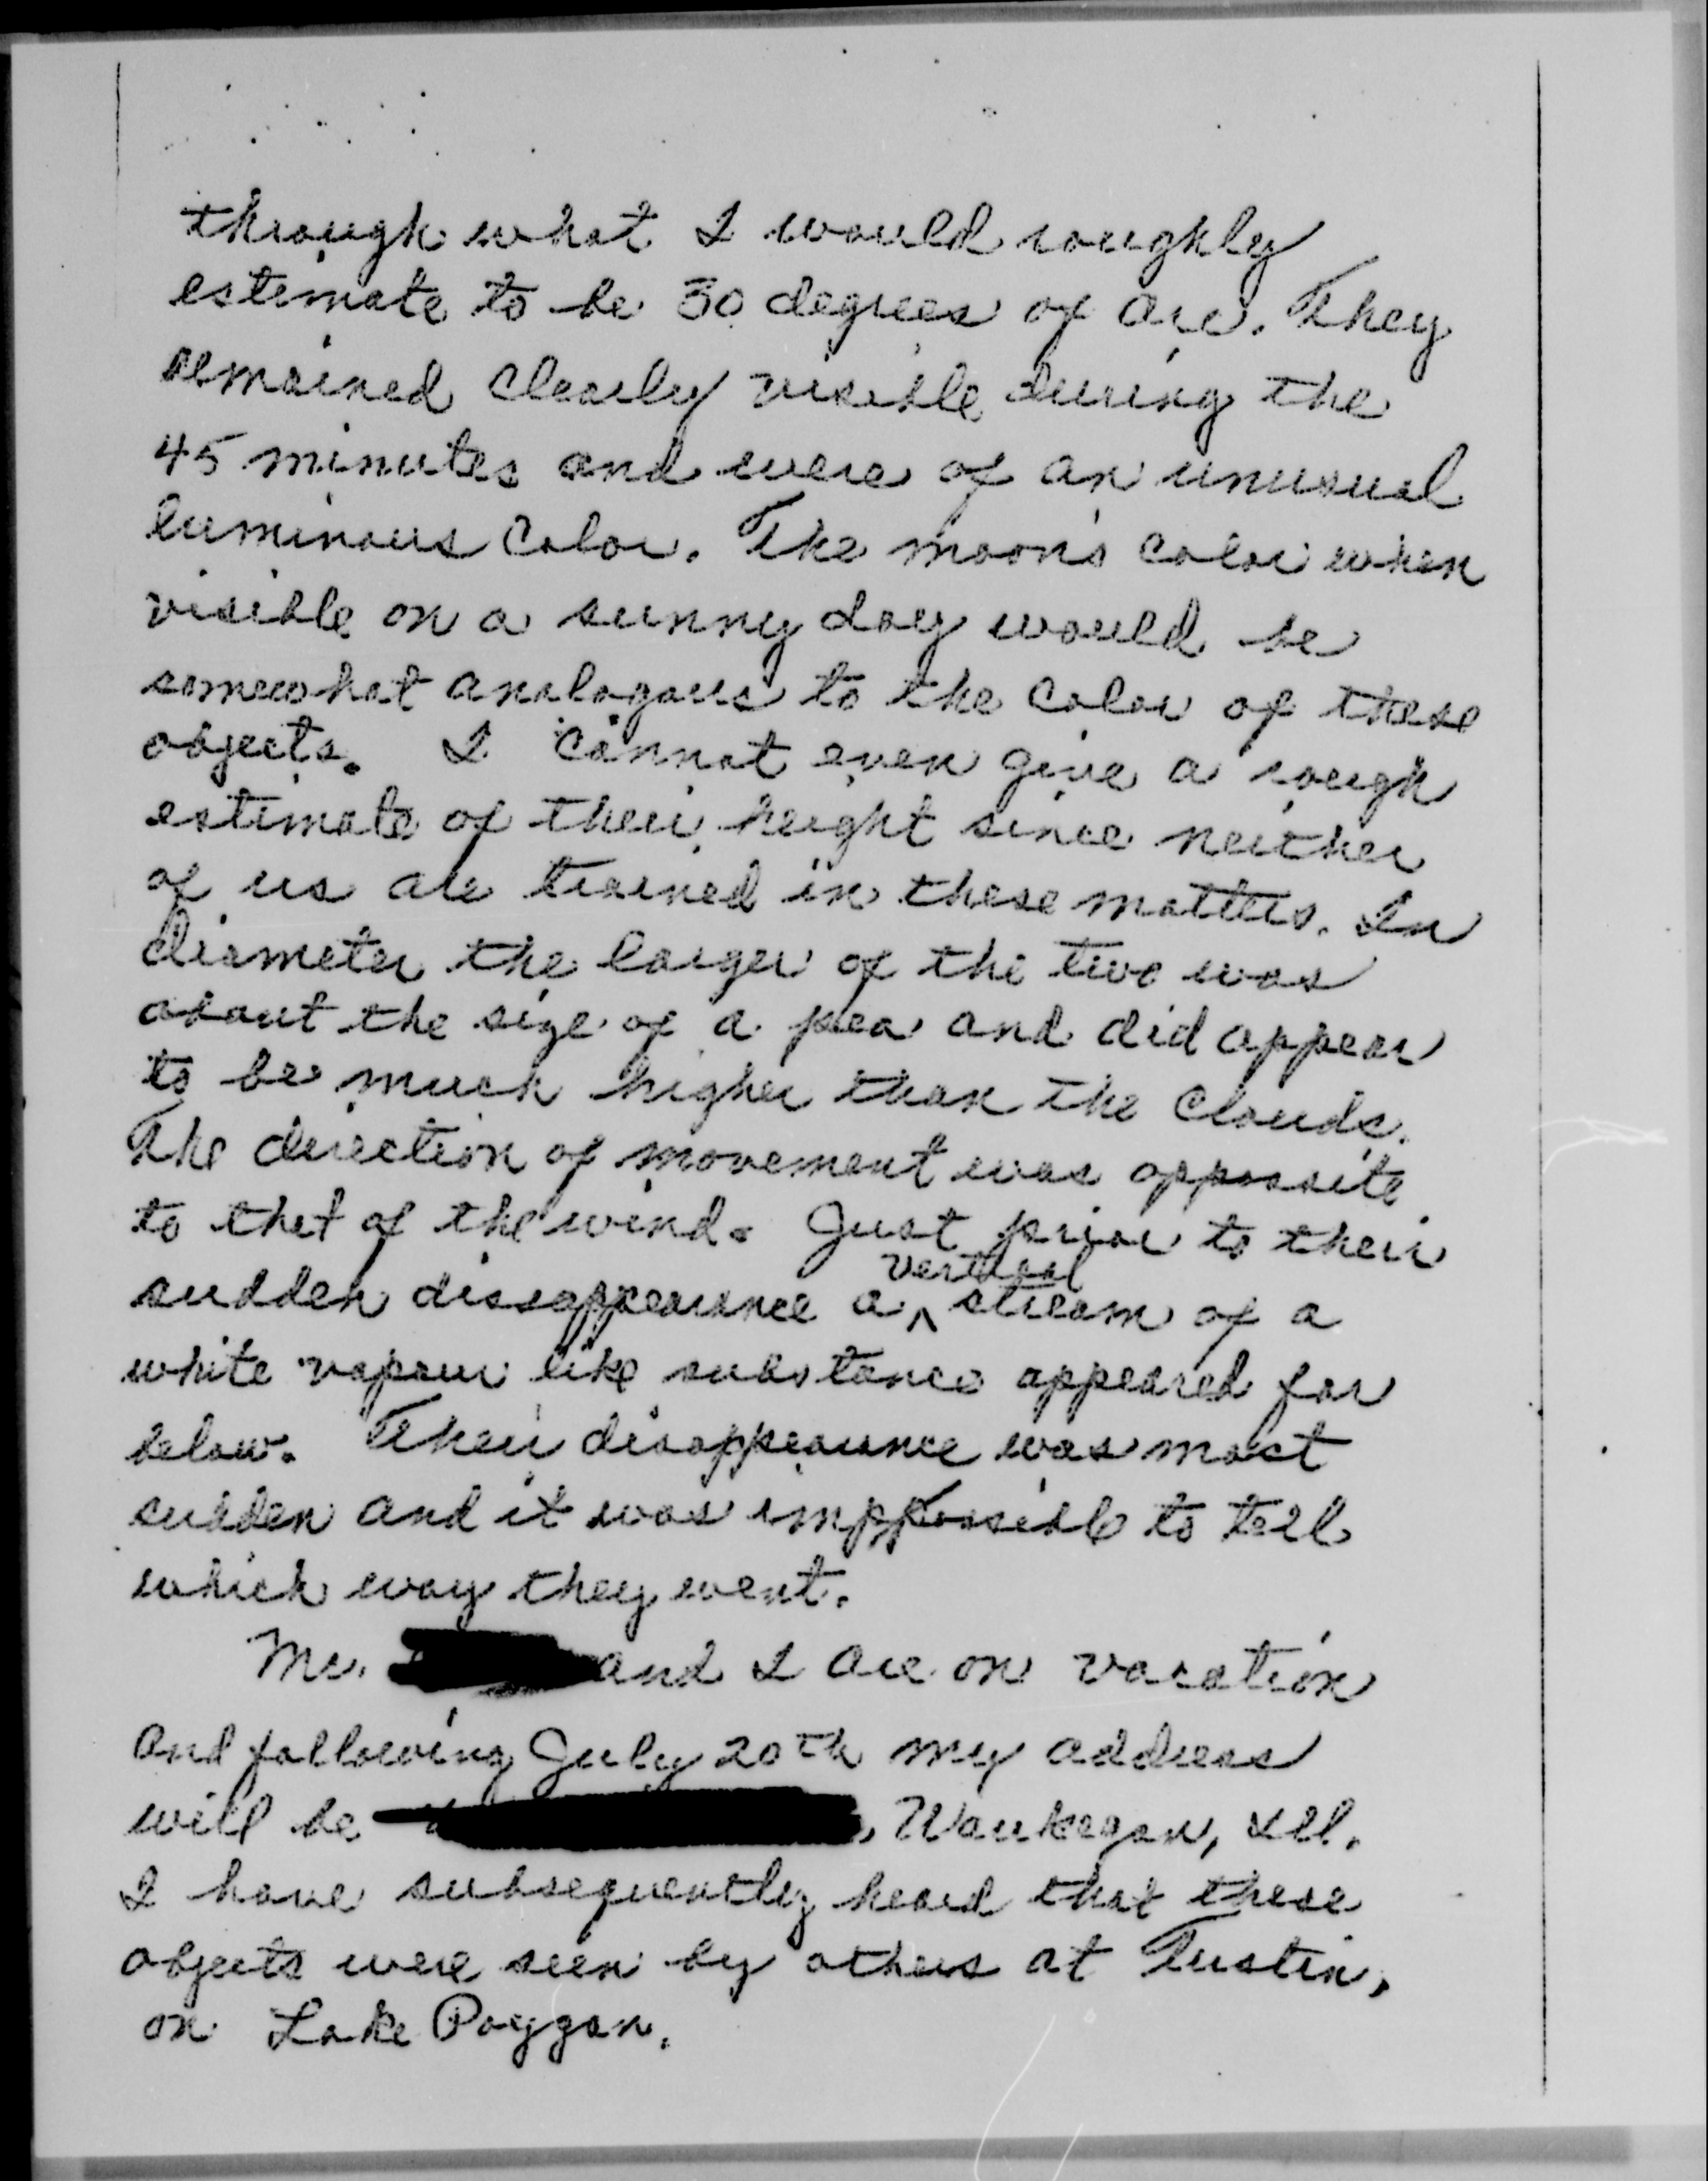 through what I would roughly
estimate to be 30 degrees of arc. They
remained clearly visible during the
45 minutes and were of an unusual
luminous color. The moon's color when
visible on a sunny day would be
somewhat analogous to the color of these
objects. I cannot even give a rough
estimate of their height since neither
of us are trained in these matters. In
diameter the larger of the two was
about the size of a pea and did appear
to be much higher than the clouds.
The direction of movement was opposite
to that of the wind. Just prior to their
sudden dissappearance a vertical stream of a
white vapour like substance appeared far
below. Their disappearance was most
sudden and it was impposible to tell
which way they went.
Mr. and I are on vacation
and following July 20th my address
will be , Waukegan, Ill.
I have subsequently heard that these
objects were seen by others at Tustin,
on Lake Poygan.